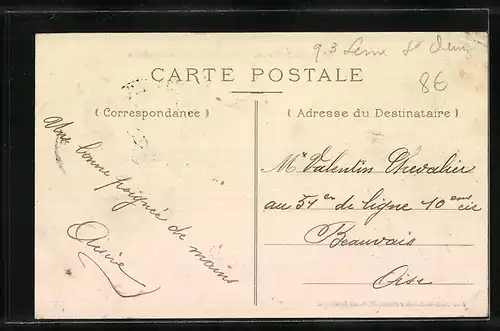 93 Seine St Denis
8€
CARTE POSTALE
( Correspondance )
( Adresse du Destinataire )
Une bonne poignée de mains
Mr Valentin Chevalier
au 51em de ligne 10em cie
Beauvais
Oise